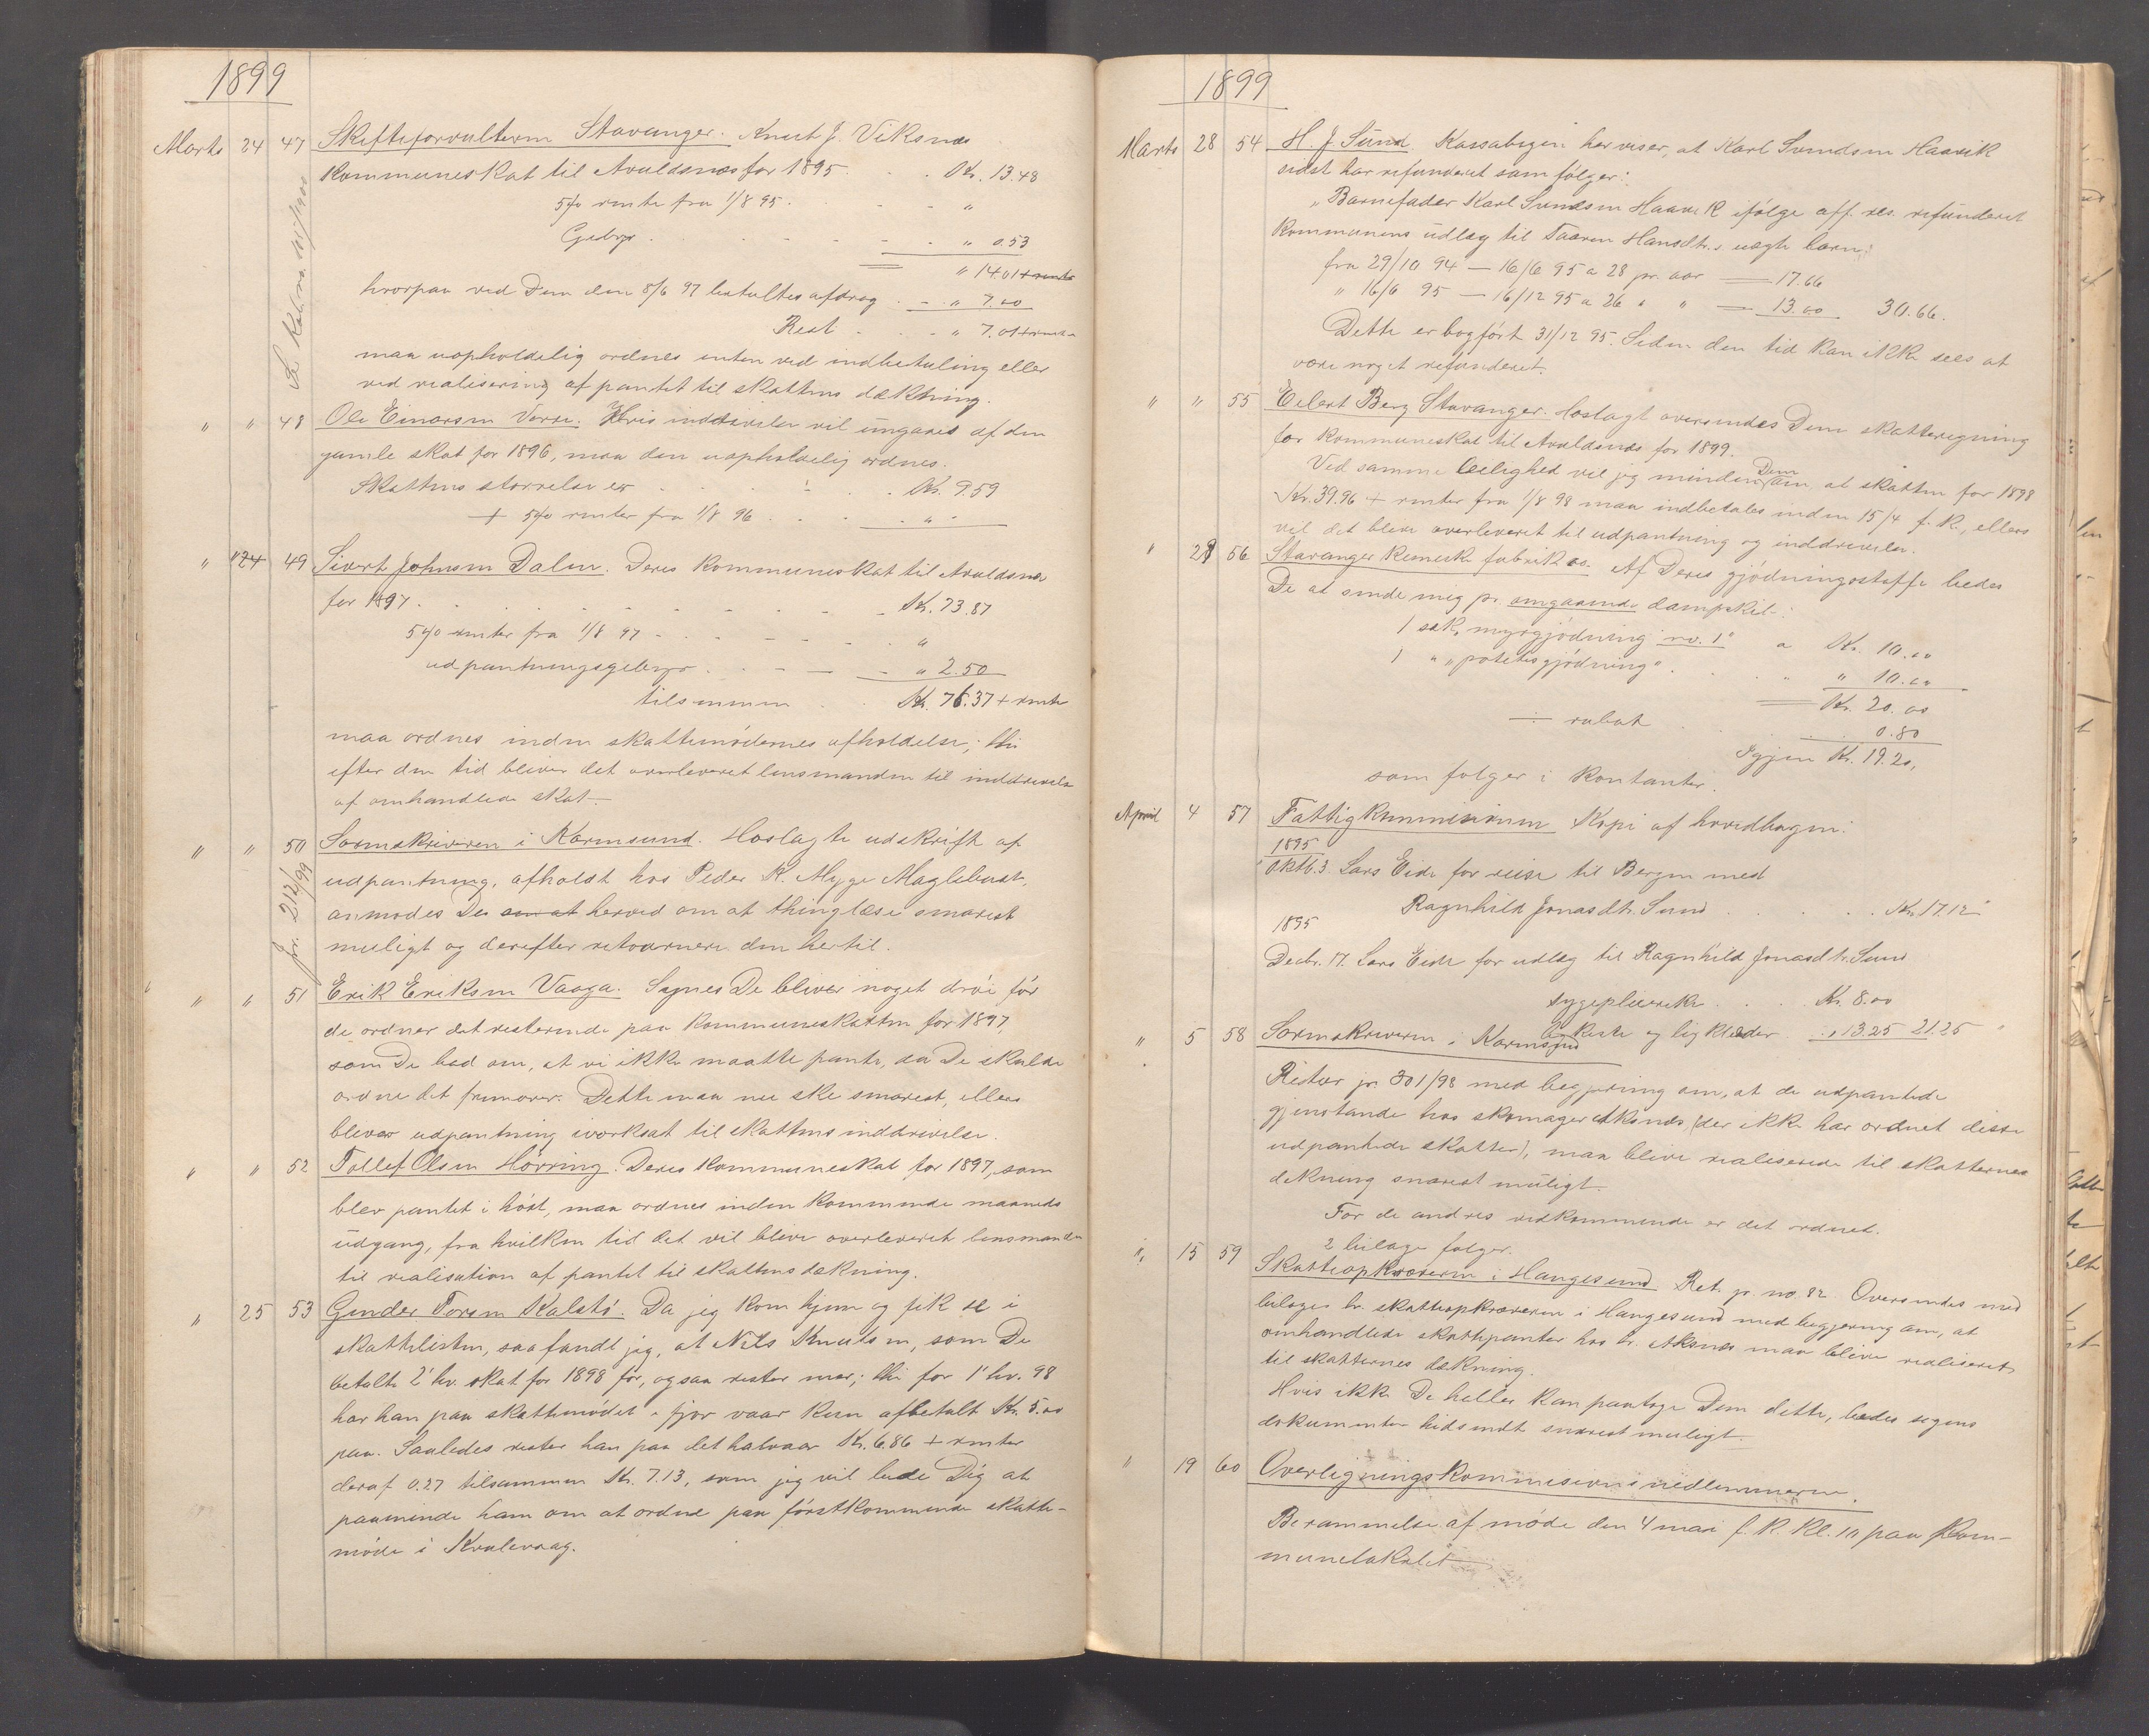 1899
Marts 24 47 Skifteforvalteren Stavanger. Knut J. Viksnes
Kommuneskat til Avaldsnes for 1895 . . . Kr. 13.48
5% renter fra 1/8 95 . . . "
Gebyr . . . " 0.53
" 14.01 + renter
hvorpaa ved Dem den 8/6 97 betaltes afdrag . . " 7.00
Rest . . . " 7.01 + renter
maa uopholdelig ordnes enten ved indbetaling eller
ved realisering af pantet til skattens dækning.
" " 48 Ole Einarsen Vorre. Hvis inddrivelse vil ungaaes af den
gamle skat for 1896, maa den uopholdelig ordnes.
Skattens størrelse er . . . Kr. 9.59
+ 5% renter fra 1/8 96 . . . "
" 24 49 Sivert Johnsen Dalen. Deres kommuneskat til Avaldsnes
for 1897 . . . Kr. 73.87
5% renter fra 1/8 97 . . . "
udpantningsgebyr . . . " 2.50
tilsammen . . Kr. 76.37 + renter
maa ordnes inden skattemødernes afholdelse; thi
efter den tid bliver det overleveret lensmanden til inddrivelse
af omhandlede skat.
" " 50 Sorenskriveren i Karmsund. Hoslagte udskrift af
jr. 212/99
udpantning, afholdt hos Peder K. Myge Maglebust,
anmodes De om at herved om at thinglæse snarest
muligt og derefter retournere den hertil.
" " 51 Erik Eriksen Vaaga. Synes De bliver noget drøi før
de ordner det resterende paa kommuneskatten for 1897,
som De bad om, at vi ikke maatte pante, da De skulde
ordne det Dette maa nu ske snarest, ellers
bliver udpantning iverksat til skattens inddrivelse.
" " 52 Tollef Olsen Hørring. Deres kommuneskat for 1897, som
blev pantet i høst, maa ordnes inden kommende maaneds
udgang, fra hvilken tid det vil blive overleveret lensmanden
til realisation af pantet til skattens dækning.
" 25 53 Gunder Toresen Kalstø. Da jeg kom hjem og fik se i
skattelisten, saa fandt jeg, at Nils Knutsen, som De
betalte 2' hv. skat for 1898 for, ogsaa rester mer; thi for 1' hv. 98
har han paa skattemødet i fjor vaar kun afbetalt Kr. 5.00
paa. Saaledes rester han paa det halvaar Kr. 6.86 + renter
deraf 0.27 tilsammen Kr. 7.13, som jeg vil bede Dig at
paaminde ham om at ordne paa førstkommende skatte-
møde i Kvalevaag.
1899
Marts 28 54 H. J. Sund. Kassabogen her viser, at Karl Svendsen Haavik
sidst har refunderet som følger:
"Barnefader Karl Svendsen Haavik ifølge aff. res. refunderet
Kommunens udlæg til Taaren Hansdtr.s uægte barn:
fra 29/10 94 — 16/6 95 a 28 pr. aar = 17.66
" 16/6 95 — 16/12 95 a 26 " " = 13.00 30.66.
Dette er bogført 31/12 95. Siden den tid kan ikke sees at
være noget refunderet.
" " 55 Eilert Berg Stavanger. Hoslagt oversendes Dem skatteregning
for kommuneskat til Avaldsnes for 1899.
Ved samme leilighed vil jeg minde Dem om, at skatten for 1898
Kr. 39.96 + renter fra 1/8 98 maa indbetales inden 15/4 f. k., ellers
vil det blive overleveret til udpantning og inddrivelse.
" 29 56 Stavanger kemiske fabrik os. Af Deres gjødningsstoffe bedes
De at sende mig pr. omgaaende dampskib:
1 sæk "myrgjødning no. 1" a Kr. 10.00
1 " "potetesgjødning" . . . " 10.00
Kr. 20.00
÷ rabat . . . 0.80
Igjen Kr. 19.20,
som følger i kontanter.
April 4 57 Fattigkommissionen Kopi af hovedbogen:
1895
Oktb. 3. Lars Eide for reise til Bergen med
Ragnhild Jonasdtr. Sund . . . Kr. 17.12
1895
Decbr. 17. Lars Eide for udlæg til Ragnhild Jonasdtr. Sund
sygepleierske . . . Kr. 8.00
ligkiste og ligklæder . " 13.25 21.25 "
" 5 58 Sorenskriveren i Karmsund
Retur jr. 301/98 med begjæring om, at de udpantede
gjenstande hos skomager Aksnes (der ikke har ordnet disse
udpantede skatter), maa blive realiserede til skatternes
dækning snarest muligt.
For de andres vedkommende er det ordnet.
2 bilage følger.
" 15 59 Skatteopkræveren i Haugesund Ret. jr. no. 82. Oversendes med
bilager hr. skatteopkræveren i Haugesund med begjæring om, at
omhandlede skattepanter hos hr. Aksnes maa blive realiseret
til skatternes dækning.
Hvis ikke De heller kan paatage Dem dette, bedes sagens
dokumenter hidsendt snarest muligt.
" 19 60 Overligningskommissionsmedlemmerne.
Berammelse af møde den 4 mai f. k. kl. 10 paa Kom-
munelokalet